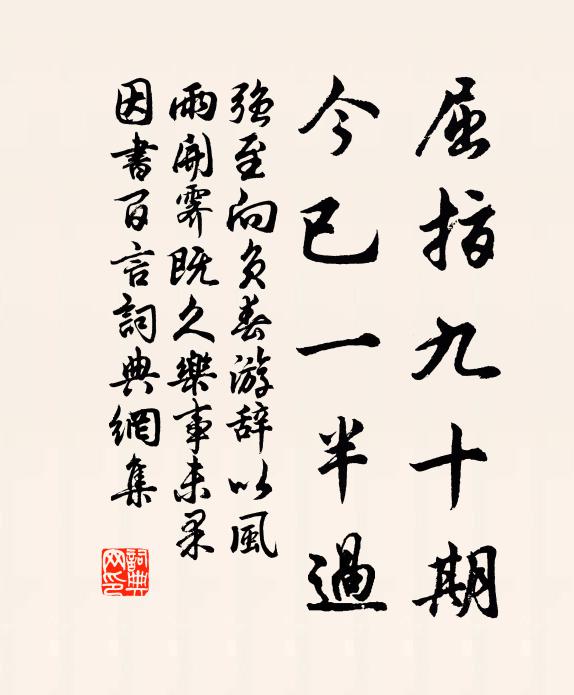 屈指九十期
今已一半過
強至向負春游辞以風
雨開霽既久樂事未果
因書百言詞典網集
詞典
网印